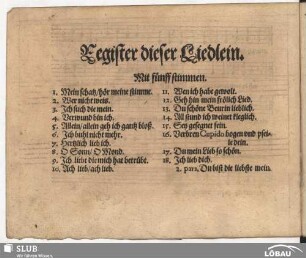 Register dieser Liedlein.
Mit fünff stimmen.
1. Mein schatz/hör meine stimme.
2. Wer nicht weis.
3. Ich such die mein.
4. Verwund bin ich.
5. Allein/allein geh ich gantz bloß.
6. Ich buhl nicht mehr.
7. Hertzlich lieb ich.
8. O Sonn/O Mond.
9. Ich liebt die mich hat betrübt.
10. Ach lieb/ach lieb.
11. Wen ich habe gewolt.
12. Geh hin mein frölich Lied.
13. Du schöne Venerin lieblich.
14. All stund ich weinet kleglich.
15. Sey gesegnet fein.
16. Verbren Cupido bogen und pfei-
le dein.
17. Du mein Lieb so schön.
18. Ich lieb dich.
2. pars, Du bist die liebste mein.
SLUB
Wir führen Wissen.
LÖBAU